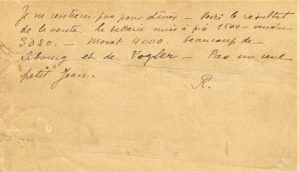 Je ne rentrerai pas pour dîner – Voici le résultat
de la vente. La mise à prix 1500 – vendue
3020. – Monet 4000. beaucoup de
Lebourg et de Vogler – Pas un seul
petit Jean.
R.